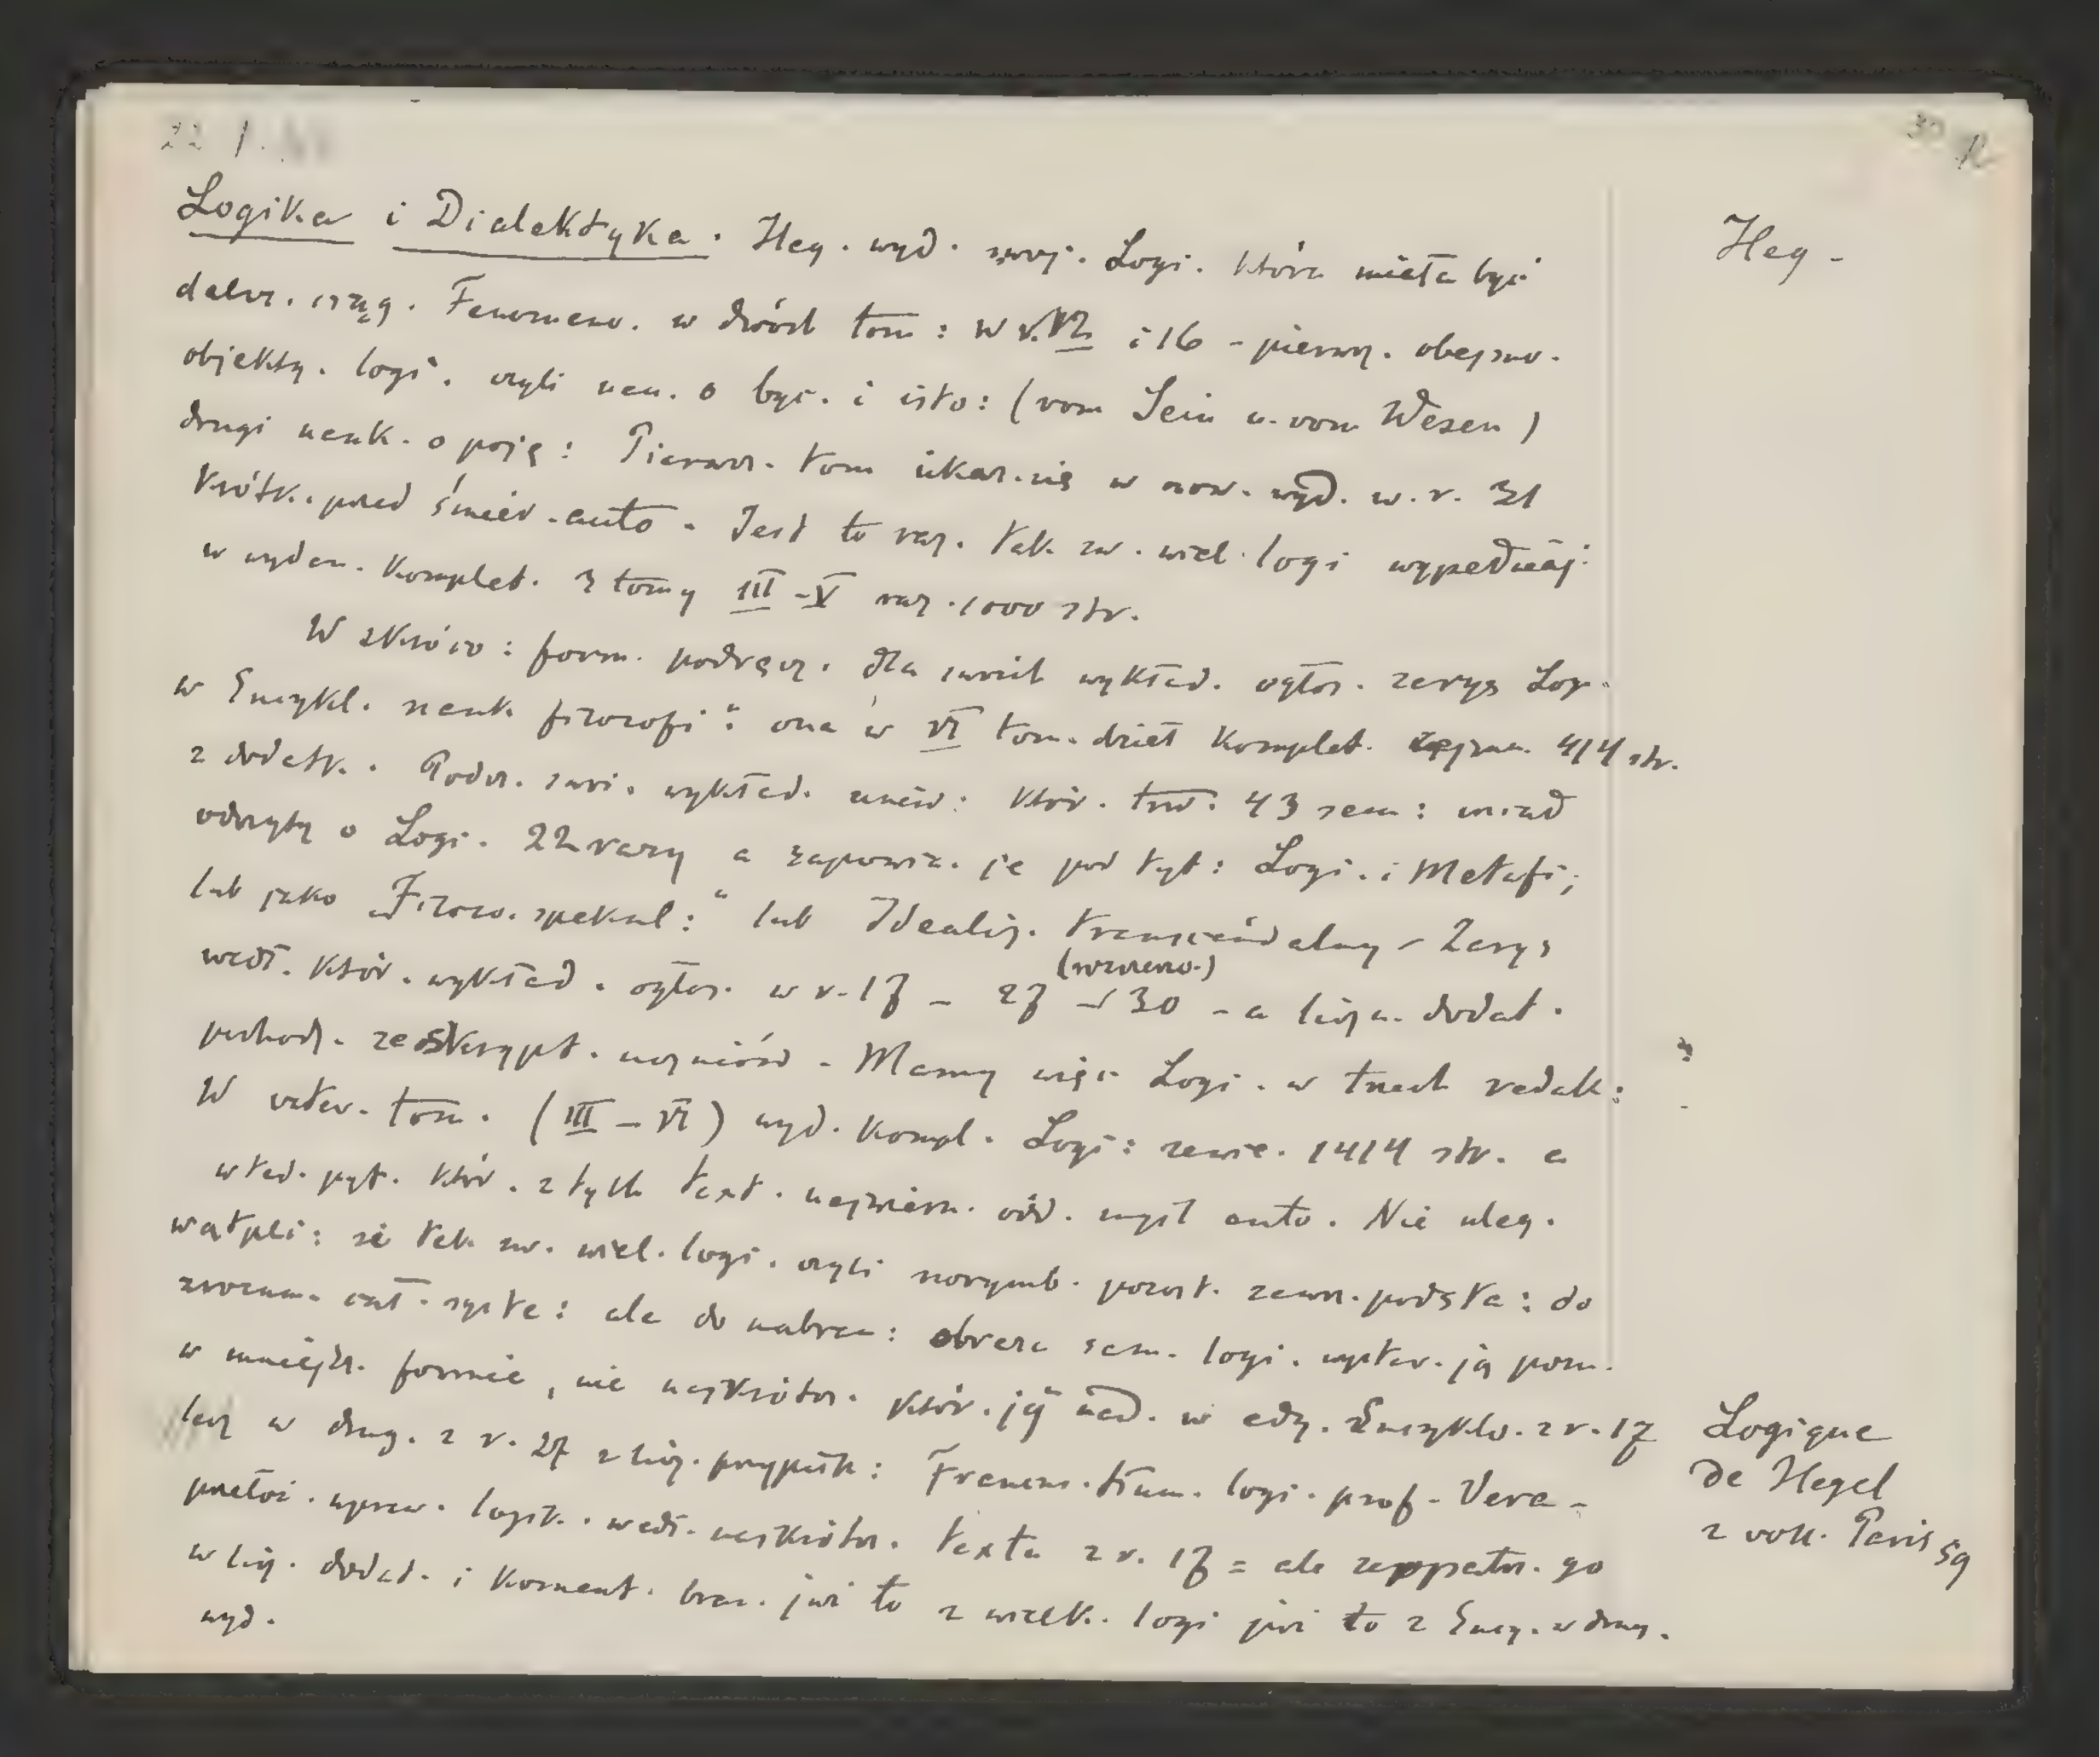 22 /.
30 12
Logika i Dialektyka. Heg. wyd. swoj. Logi. która miała być
Heg -
dalsz. ciąg. Fenomeno. w dwóch tom: w r. 12 i 16 - pierwsz. obejmo.
objekty. logi. czyli nau. o byc. i isto: (vom Sein u. vom Wesen)
drugi nauk. o poję: Pierwsz. tom ukaz. się w now. wyd. w. r. 31
krótk. przed śmier. auto. Jest to raz. tak zw. wiel. logi wypełniaj.
w wydan. komplet. 3 tomy III - V raz. 1000 str.
W skróco: form. podręcz. dla swoich wykład. ogłos. zarys Log.
w Encykl. nauk filozofi": ona w VI tom. dzieł komplet. zajmu. 414 str.
z dodatk. Podcz. swoi. wykład. uniw: któr. trw. 43 sem: miał
odczyty o Logi. 22 razy a zapowia. je pod tyt: Logi. i Metafi;
lub jako „Filozo. spekul:" lub Idealiz. transcendalny - Zarys
wedł. któr. wykład. ogłos. w r. 17 - 27 - i 30 - a liczn. dodat.
pochodz. ze skrypt. uczniów - Mamy więc Logi. w trzech redak:
W czter. tom. (III - VI) wyd. kompl. Logi: zawie. 1414 str. a
wted. pyt. któr. z tych text. najwiern. odd. myśl auto. Nie uleg.
wątpli: że tak zw. wiel. logi. czyli norymb. pozost. zawsz. podsta: do
zrozum. cał. syste: ale do nabra: obraza sam. logi. wystar. ją pozn.
w mniejsz. formie, nie najkrótsz. któr. ją nad. w edy. Encyklo. z r. 17
Logique
lecz w drug. z r. 27 z licz. przypisk: Francus. tłum. logi. prof. Vera -
de Hegel
przełoż. upraw. logik. wedł. najkrótsz. texta z r. 17 = ale zaopatrz. go
2 voll. Paris 59
w licz. dodat. i koment. bran. już to z wielk. logi już to z Ency. w drug.
wyd.